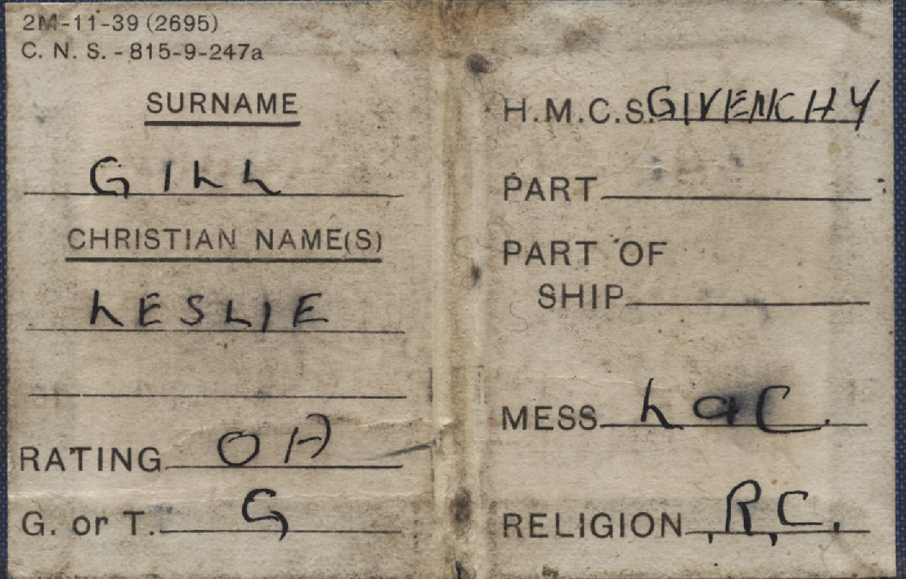 2M-11-39 (2695)
C. N. S. - 815-9-247a
SURNAME
GILL
CHRISTIAN NAME(S)
LESLIE
RATING OA
G. or T. G
H.M.C.S. GIVENCHY
PART
PART OF
SHIP
MESS
RELIGION R.C.